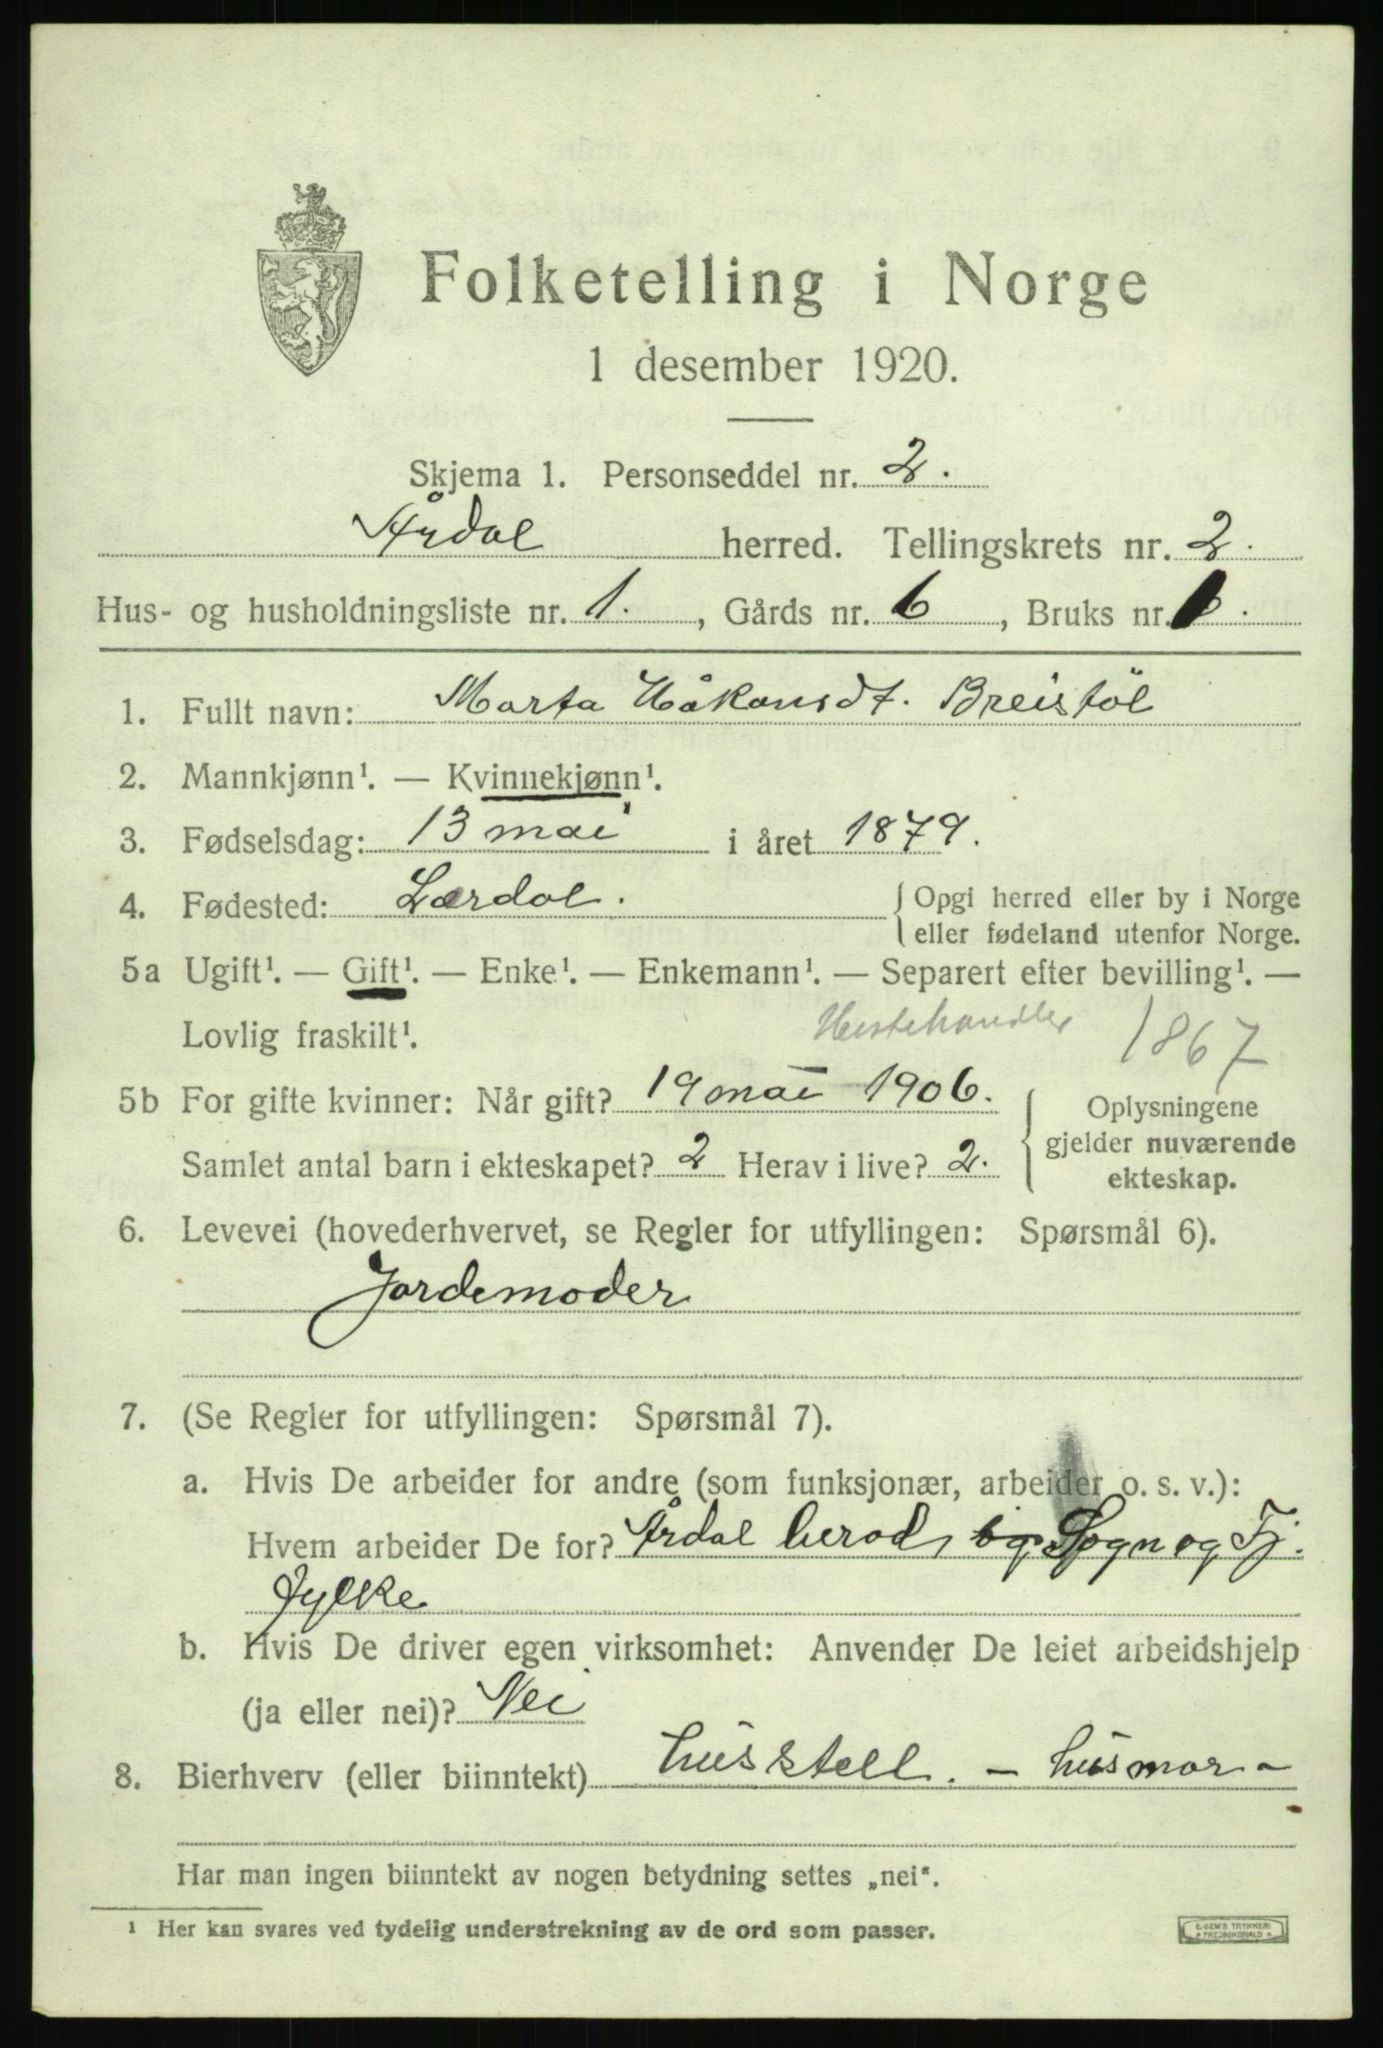 Folketelling i Norge
1 desember 1920.
Skjema 1. Personseddel nr. 2.
Årdal herred. Tellingskrets nr. 2.
Hus- og husholdningsliste nr. 1. , Gårds nr. 6 , Bruks nr.
1. Fullt navn: Marta Håkonsdt. Breistöl
2. Mannkjønn¹. — Kvinnekjønn¹.
3. Fødselsdag: 13 mai i året 1879.
4. Fødested: Lærdal. { Opgi herred eller by i Norge
eller fødeland utenfor Norge.
5a Ugift¹. — Gift¹. — Enke¹. — Enkemann¹. — Separert efter bevilling¹. —
Lovlig fraskilt¹. Hestehandler 1867
5b For gifte kvinner: Når gift? 19 mai 1906. { Oplysningene
gjelder nuværende
Samlet antal barn i ekteskapet? 2 Herav i live? 2.
ekteskap.
6. Levevei (hovederhvervet, se Regler for utfyllingen: Spørsmål 6).
Jordemoder
7. (Se Regler for utfyllingen: Spørsmål 7).
a. Hvis De arbeider for andre (som funksjonær, arbeider o. s. v.):
Hvem arbeider De for? Årdal herad og Sogn og Fj.
fylke
b. Hvis De driver egen virksomhet: Anvender De leiet arbeidshjelp
(ja eller nei)? Nei
8. Bierhverv (eller biinntekt) husstell. – husmor –
Har man ingen biinntekt av nogen betydning settes „nei“.
¹ Her kan svares ved tydelig understrekning av de ord som passer.
E. SEM'S TRYKKERI
* FREDRIKSHALD *